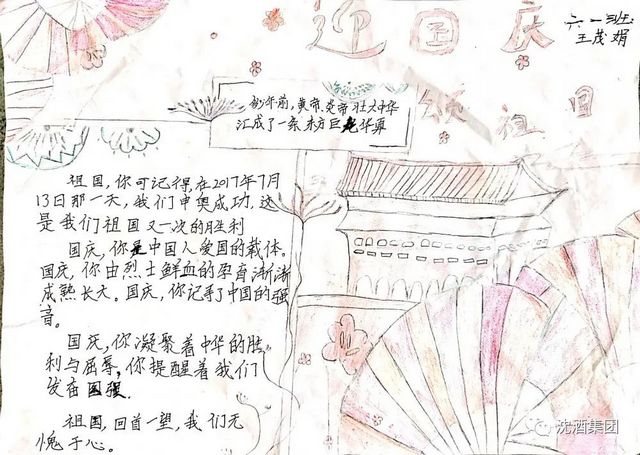 迎国庆
六一班
王茂娟
颂祖国
炎帝 壮大中华
汇成了一条东方巨龙华夏
祖国,你可记得,在2017年7月
13日那一天,我们申奥成功,这
是我们祖国又一次的胜利
国庆,你是中国人爱国的载体。
国庆,你由烈士鲜血的孕育渐渐
成熟长大。国庆,你记录了中国的强
音。
国庆,你凝聚着中华的胜
利与屈辱,你提醒着我们
发奋图强.
祖国,回首一望,我们无
愧于心。
沈酒集团